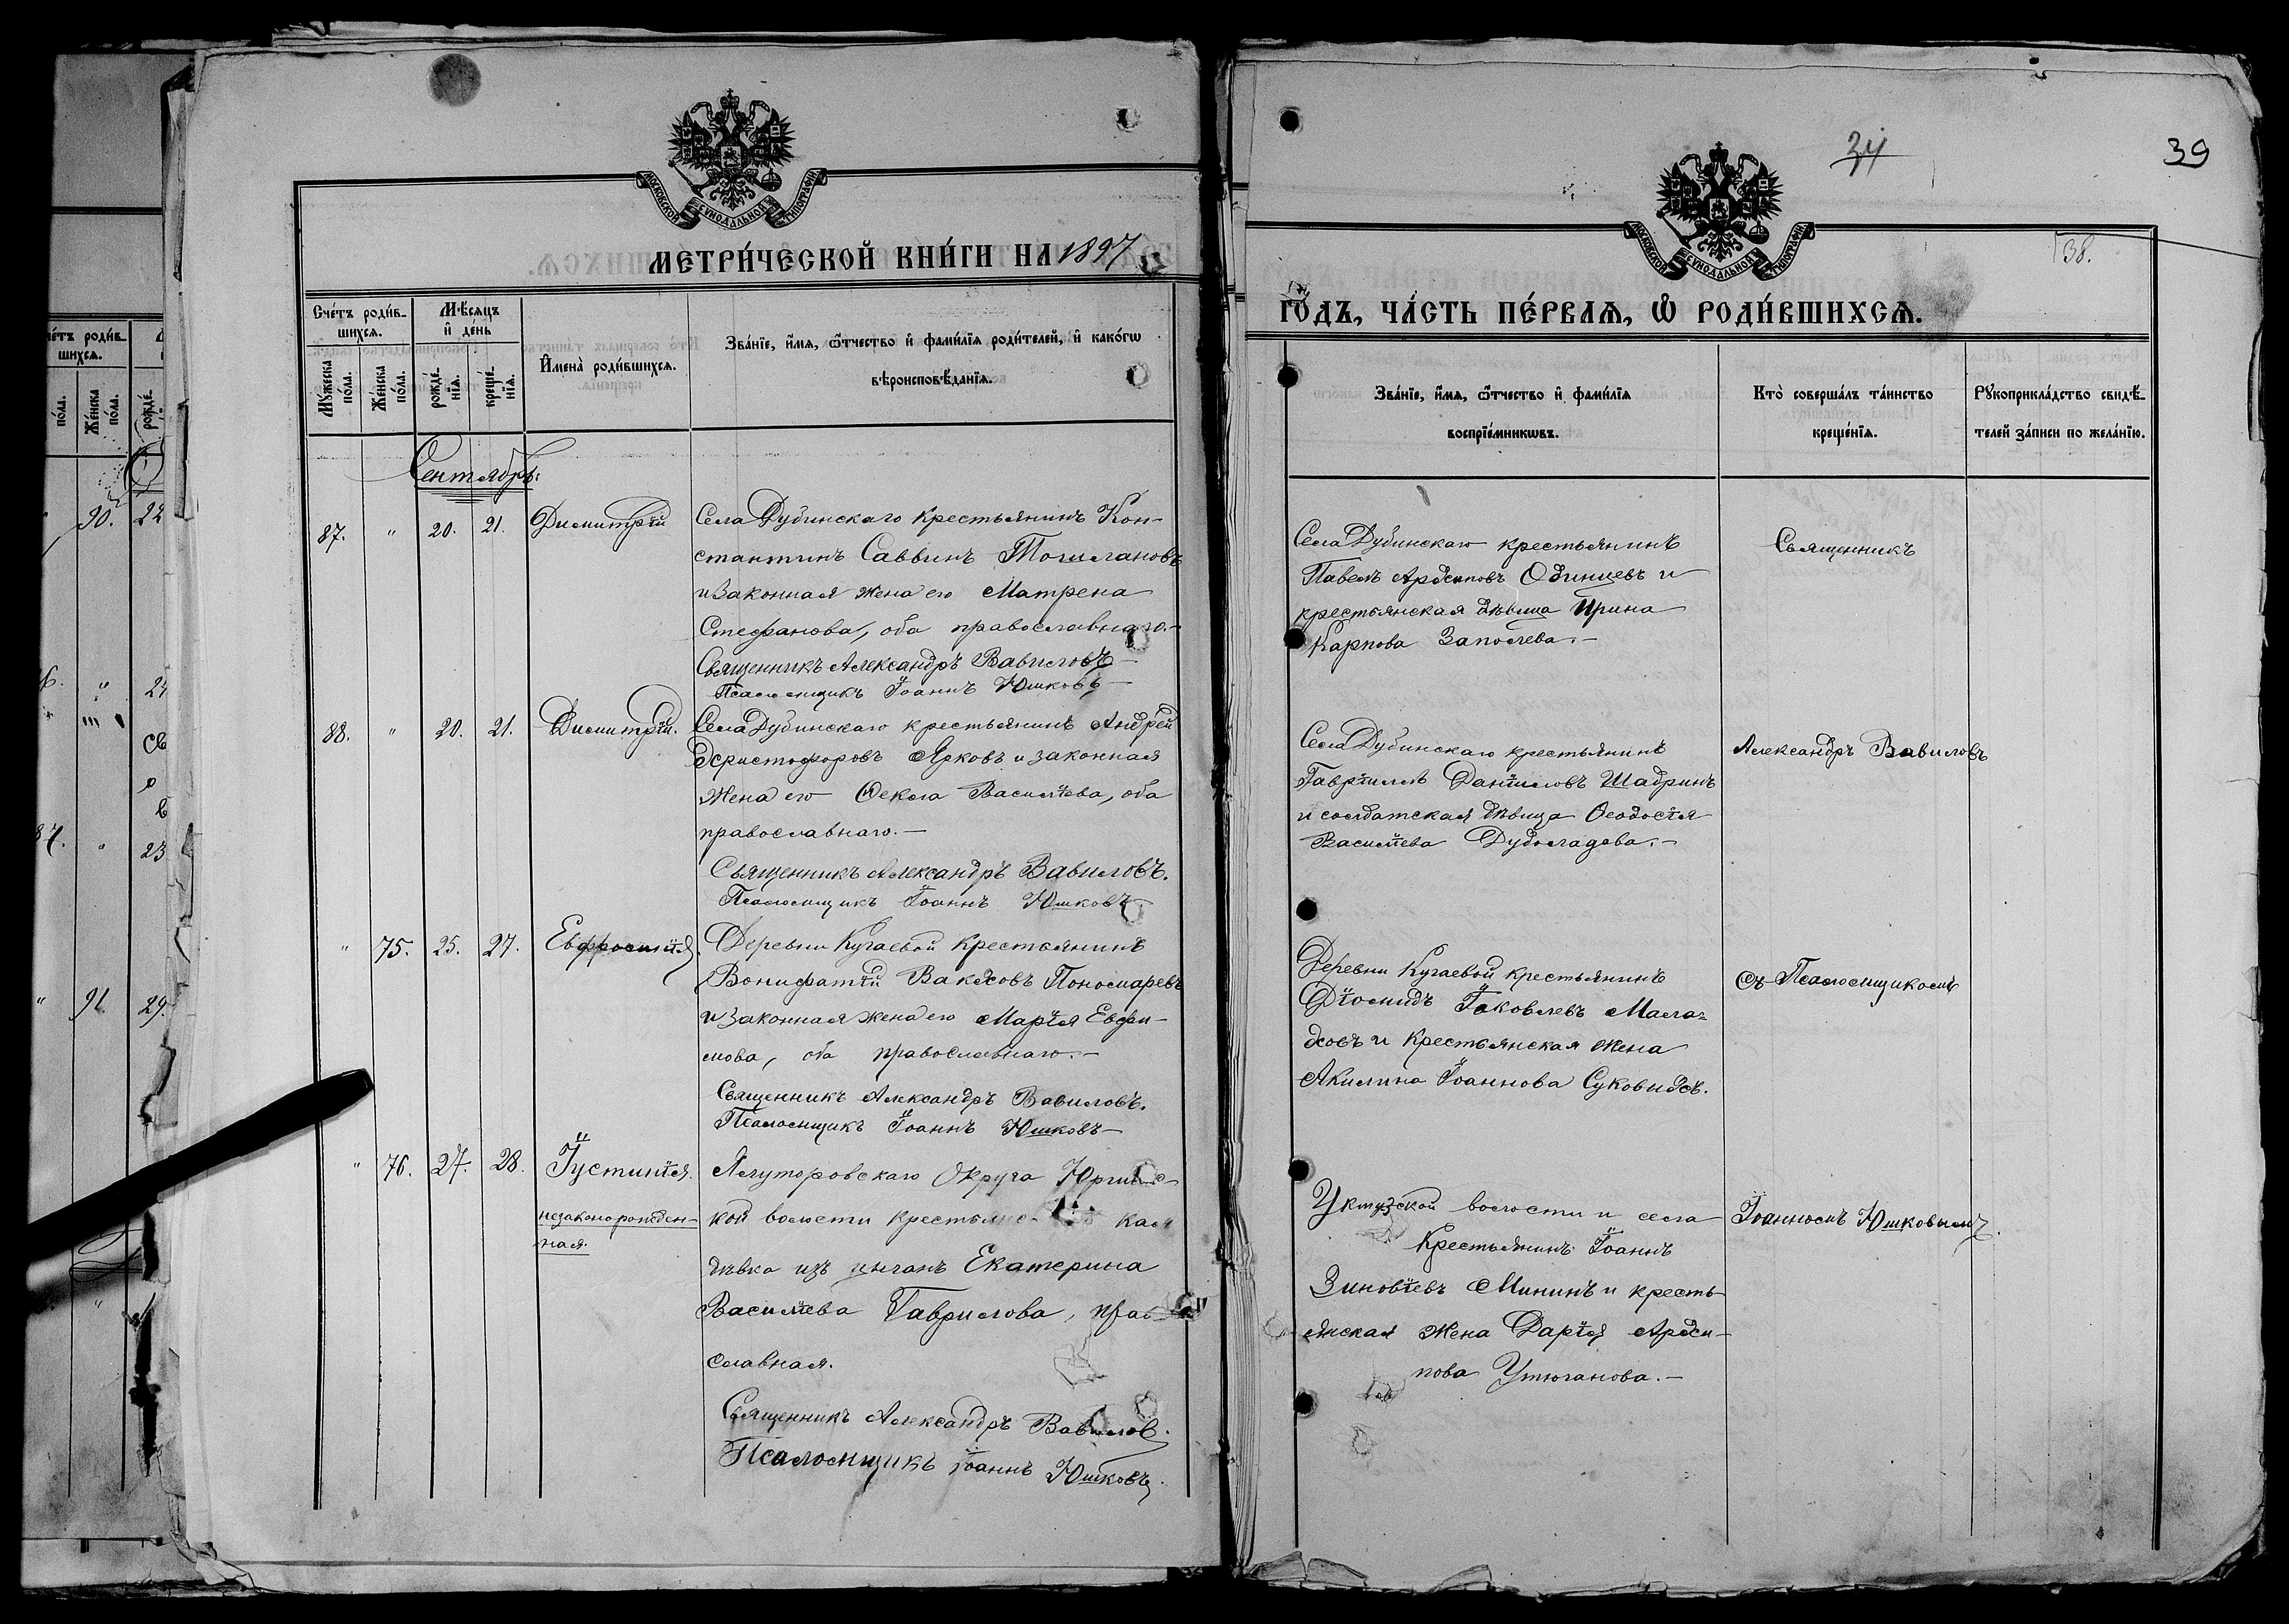 МОСКОВСКОЙ СѴНОДАЛЬНОЙ ТИПОГРАФІИ
МЕТРИ́ЧЕСКОЙ КНИ́ГИ НА 1897
Сче́тъ роди́в-
шихся.
Мѣ́сяцъ
и҆ де́нь
Мꙋ́жеска по́ла.
Же́нска по́ла.
рожде́-
нїѧ.
креще́-
нїѧ.
И҆мена̀ роди́вшихсѧ.
Зва́нїе, и҆́мѧ, ѻ҆́тчество и҆ фами́лїѧ роди́телей, и҆ како́гѡ
вѣроисповѣ́данїѧ.
Сентябрь:
87. " 20. 21. Димитрій
Села Дубинскаго крестьянинъ Кон-
стантинъ Саввинъ Толмановъ
и законная жена его Матрена
Стефанова, оба православнаго.-
Священникъ Александръ Вавиловъ
Псаломщикъ Іоаннъ Юшковъ
88. " 20. 21. Димитрій.
Села Дубинскаго крестьянинъ Андрей
Христофоровъ Ярковъ и законная
жена его Ѳекла Васильева, оба
православнаго.-
Священникъ Александръ Вавиловъ.
Псаломщикъ Іоаннъ Юшковъ
" 75. 25. 27. Евфросинія
Деревни Кугаевой крестьянинъ
Вонифатій Вакховъ Пономаревъ
и законная жена его Марія Евфи-
мова, оба православнаго.-
Священникъ Александръ Вавиловъ.
Псаломщикъ Іоаннъ Юшковъ
" 76. 27. 28. Іустинія.
незаконорожден-
ная.
Ялуторовскаго Округа Юргинс-
кой волости крестьянс- кая
дѣвка изъ Екатерина
Васильева Гаврилова, право-
славная.
Священникъ Александръ Вавилов.
Псаломщикъ Іоаннъ Юшковъ.
34
39
38.
МОСКОВСКОЙ СѴНОДАЛЬНОЙ ТИПОГРАФІИ
ГО́ДЪ, ЧА́СТЬ ПЕ́РВАѦ, Ѡ҆ РОДИ́ВШИХСѦ.
Зва́нїе, и҆́мѧ, ѻ҆́тчество и҆ фами́лїѧ
воспрїе́мникѡвъ.
Кто̀ соверша́лъ та́инство
креще́нїѧ.
Рꙋкоприкла́дство свидѣ́-
телей за́писи по жела́нїю.
Села Дубинскаго крестьянинъ
Павелъ Архиповъ Одинцевъ и
крестьянская дѣвица Ирина
Карпова Заполева.-
Священникъ
Села Дубинскаго крестьянинъ
Гавріилъ Даніиловъ Шадринъ
и солдатская дѣвица Ѳеодосія
Васильева Дуболадова.-
Александръ Вавиловъ
Деревни Кугаевой крестьянинъ
Діомидъ Іаковлевъ Мала-
ховъ и крестьянская жена
Акилина Іоаннова Суковыхъ.
съ Псаломщикомъ
Уктузской волости и села
Крестьянинъ Іоаннъ
Зиновіевъ Мининъ и кресть-
янская жена Дарія Архи-
пова Утюганова.-
Іоанномъ Юшковымъ.